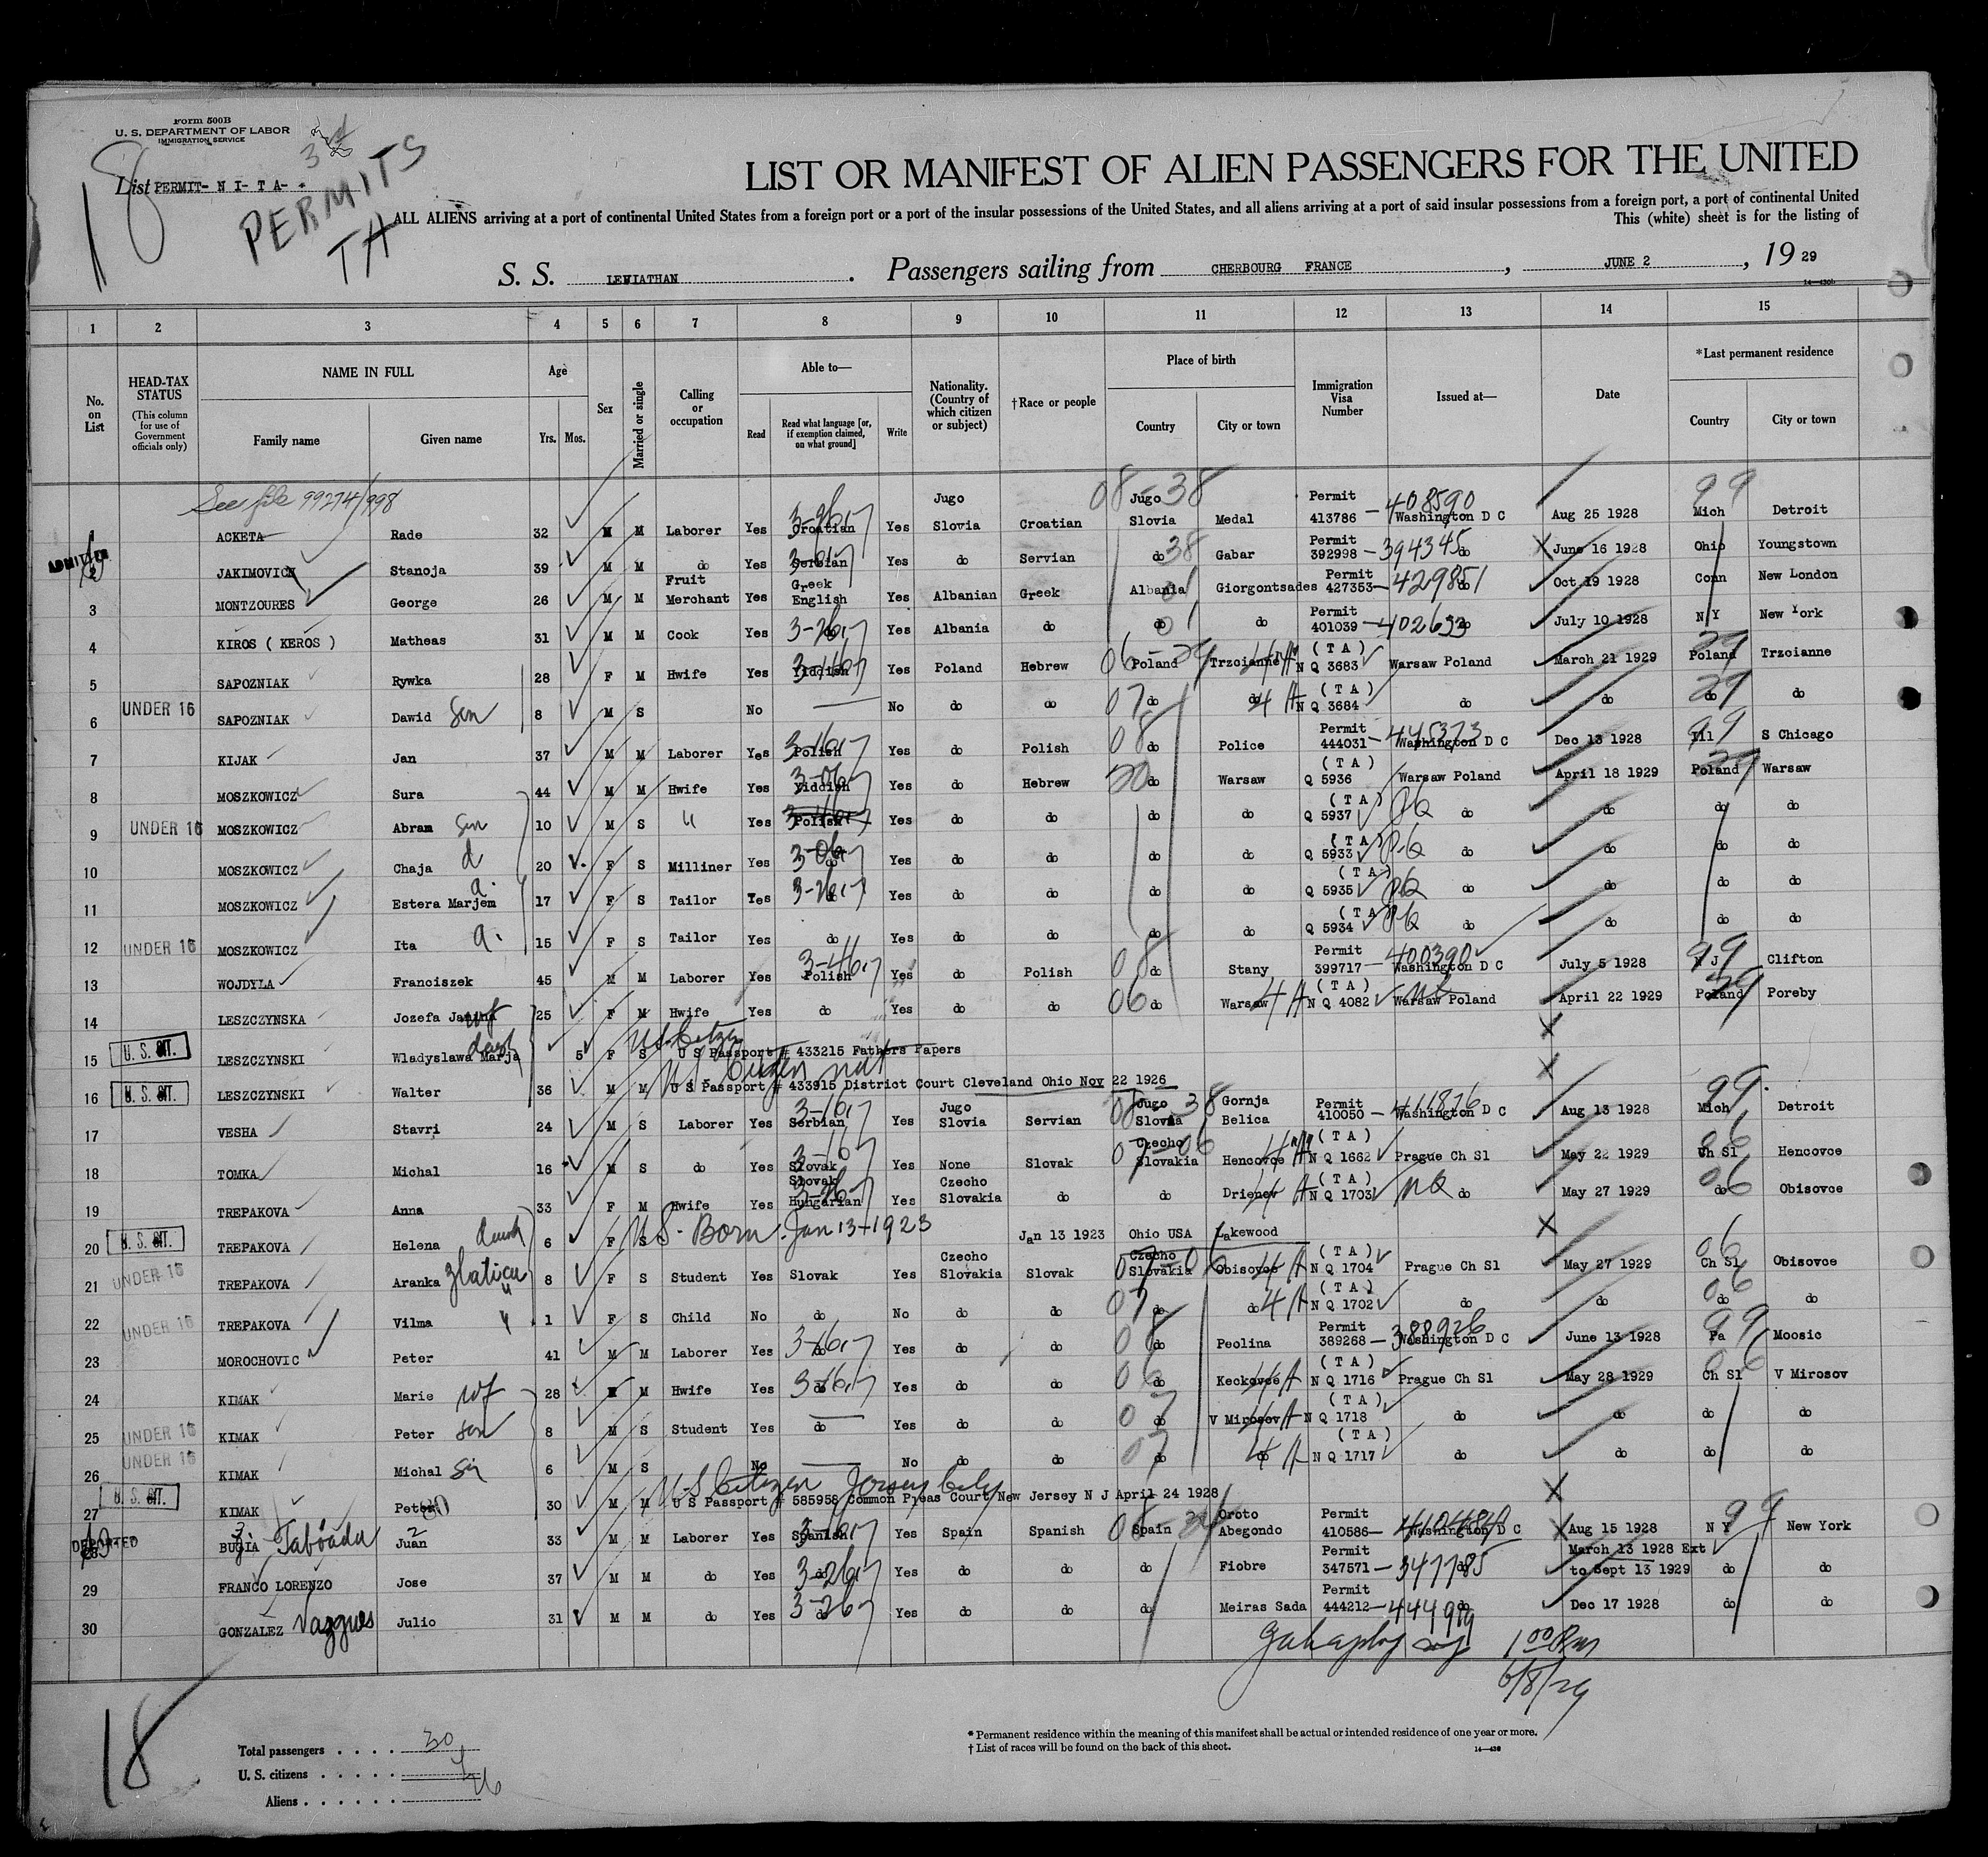 Form 500B
U. S. DEPARTMENT OF LABOR
IMMIGRATION SERVICE
3rd
List PERMIT- N I- T A- *
18
PERMITS
TA
LIST OR MANIFEST OF ALIEN PASSENGERS FOR THE UNITED
ALL ALIENS arriving at a port of continental United States from a foreign port or a port of the insular possessions of the United States, and all aliens arriving at a port of said insular possessions from a foreign port, a port of continental United
This (white) sheet is for the listing of
S. S. LEVIATHAN . Passengers sailing from CHERBOURG FRANCE , JUNE 2 , 19 29
1 2 3 4 5 6 7 8 9 10 11 12 13 14 15
No. on List
HEAD-TAX STATUS
(This column for use of Government officials only)
NAME IN FULL
Family name Given name
Age
Yrs. Mos.
Sex
Married or single
Calling or occupation
Able to—
Read
Read what language [or, if exemption claimed, on what ground]
Write
Nationality. (Country of which citizen or subject)
†Race or people
Place of birth
Country City or town
Immigration Visa Number
Issued at—
Date
*Last permanent residence
Country City or town
See file 99274/998
1 ACKETA Rade 32 M M Laborer Yes Croatian Yes Jugo Slovia Croatian Jugo Slovia Medal Permit 413786 - 408590 Washington D C Aug 25 1928 Mich Detroit
ADMITTED
2 JAKIMOVICH Stanoja 39 M M do Yes Serbian Yes do Servian do Gabar Permit 392998 - 394345 do June 16 1928 Ohio Youngstown
3 MONTZOURES George 26 M M Fruit Merchant Yes Greek English Yes Albanian Greek Albania Giorgontsades Permit 427353 - 429851 do Oct 19 1928 Conn New London
4 KIROS ( KEROS ) Matheas 31 M M Cook Yes do Yes Albania do do do Permit 401039 - 402633 do July 10 1928 N Y New York
5 SAPOZNIAK Rywka 28 F M Hwife Yes Yiddish Yes Poland Hebrew Poland Trzcianne ( T A ) N Q 3683 Warsaw Poland March 21 1929 Poland Trzcianne
6 UNDER 16 SAPOZNIAK Dawid Son 8 M S No No do do do do ( T A ) N Q 3684 do do do do
7 KIJAK Jan 37 M M Laborer Yes Polish Yes do Polish do Police Permit 444031 - 445373 Washington D C Dec 13 1928 Ill S Chicago
8 MOSZKOWICZ Sura 44 M M Hwife Yes Yiddish Yes do Hebrew do Warsaw ( T A ) Q 5936 Warsaw Poland April 18 1929 Poland Warsaw
9 UNDER 16 MOSZKOWICZ Abram Son 10 M S Yes Polish Yes do do do do ( T A ) Q 5937 do do do do
10 MOSZKOWICZ Chaja d 20 F S Milliner Yes do Yes do do do do ( T A ) Q 5933 do do do do
11 MOSZKOWICZ Estera Marjem 17 F S Tailor Yes do Yes do do do do ( T A ) Q 5935 do do do do
12 UNDER 16 MOSZKOWICZ Ita 15 F S Tailor Yes do Yes do do do do ( T A ) Q 5934 do do do do
13 WOJDYLA Franciszek 45 M M Laborer Yes Polish Yes do Polish do Stany Permit 399717 - 400390 Washington D C July 5 1928 N J Clifton
14 LESZCZYNSKA Jozefa Janina wf 25 F M Hwife Yes do Yes do do do Warsaw ( T A ) N Q 4082 Warsaw Poland April 22 1929 Poland Poreby
15 U. S. CIT. LESZCZYNSKI Wladyslawa Marja 5 F S U S Passport # 433215 Fathers Papers
16 U. S. CIT. LESZCZYNSKI Walter 36 M M U S Passport # 433915 District Court Cleveland Ohio Nov 22 1926
17 VESHA Stavri 24 M S Laborer Yes Serbian Yes Jugo Slovia Servian Jugo Slovia Gornja Belica Permit 410050 - 411876 Washington D C Aug 13 1928 Mich Detroit
18 TOMKA Michal 16 M S do Yes Slovak Yes None Slovak Czecho Slovakia Hencovce ( T A ) N Q 1662 Prague Ch Sl May 22 1929 Ch Sl Hencovce
19 TREPAKOVA Anna 33 F M Hwife Yes Slovak Hungarian Yes Czecho Slovakia do do Drienov ( T A ) N Q 1703 do May 27 1929 do Obisovce
20 U. S. CIT. TREPAKOVA Helena 6 F S U S- Born Jan 13-1923 Jan 13 1923 Ohio USA Lakewood
21 UNDER 16 TREPAKOVA Aranka Zlatica 8 F S Student Yes Slovak Yes Czecho Slovakia Slovak Czecho Slovakia Obisovce ( T A ) N Q 1704 Prague Ch Sl May 27 1929 Ch Sl Obisovce
22 UNDER 16 TREPAKOVA Vilma 1 F S Child No do No do do do do ( T A ) N Q 1702 do do do do
23 MOROCHOVIC Peter 41 M M Laborer Yes do Yes do do do Peolina Permit 389268 - 388926 Washington D C June 13 1928 Pa Moosic
24 KIMAK Marie wf 28 M Hwife Yes do Yes do do do Keckovce ( T A ) N Q 1716 Prague Ch Sl May 28 1929 Ch Sl V Mirosov
25 UNDER 16 KIMAK Peter son 8 M S Student Yes do Yes do do do V Mirosov ( T A ) N Q 1718 do do do do
26 UNDER 16 KIMAK Michal 6 M S No No do do do do ( T A ) N Q 1717 do do do do
U S Citizen Jersey City
27 U. S. CIT. KIMAK Peter 30 M M U S Passport # 585958 Common Pleas Court New Jersey N J April 24 1928
DEPORTED
28 BUGIA Taboada Juan 33 M M Laborer Yes Spanish Yes Spain Spanish Spain Oroto Abegondo Permit 410586- Washington D C Aug 15 1928 N Y New York
29 FRANCO LORENZO Jose 37 M M do Yes do Yes do do do Fiobre Permit 347571 - 347785 do March 13 1928 Ext to Sept 13 1929 do do
30 GONZALEZ Julio 31 M M do Yes do Yes do do do Meiras Sada Permit 444212 - do Dec 17 1928 do do
1 00 Pm
6/8/29
18
Total passengers . . . . 30
U. S. citizens . . . . . 4
Aliens . . . . . . 26
* Permanent residence within the meaning of this manifest shall be actual or intended residence of one year or more.
† List of races will be found on the back of this sheet.